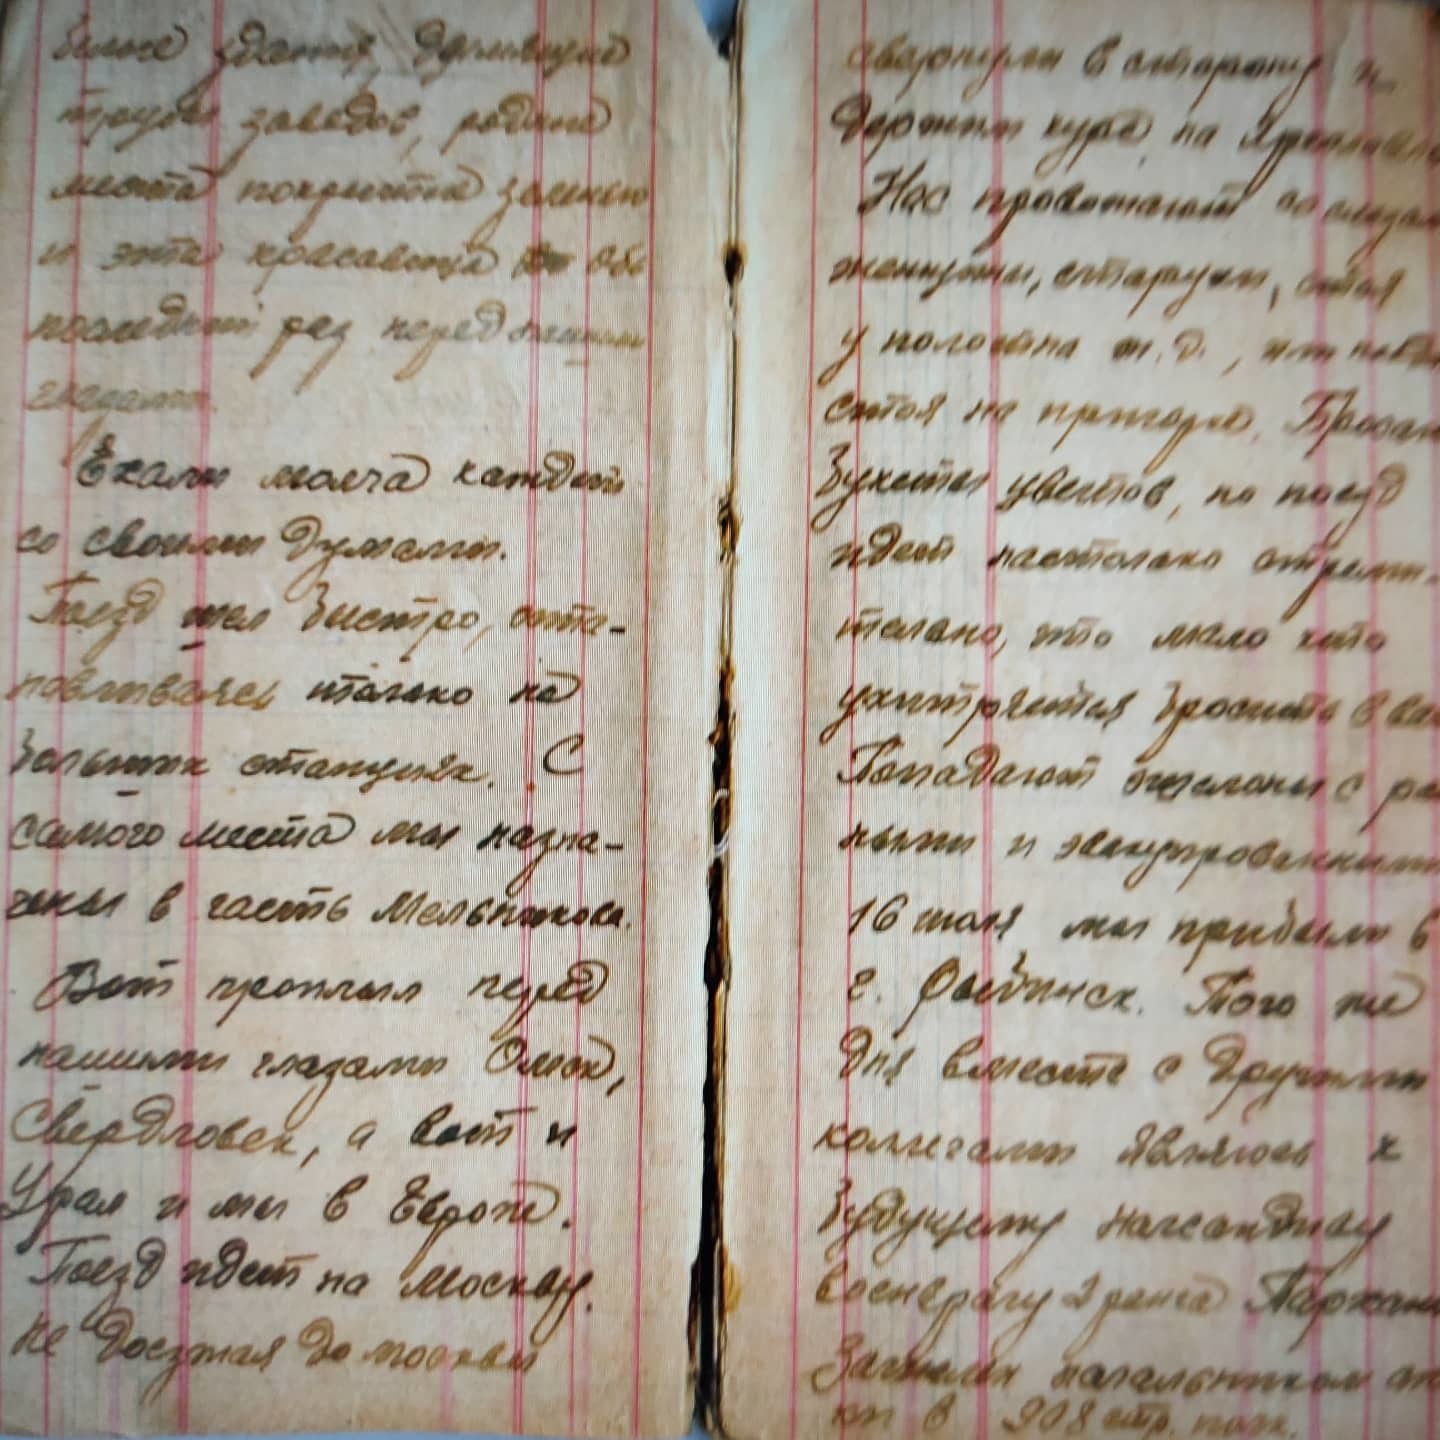 белые здания, дымящие
трубы заводов, родные
места покрытые зеленью
и эта красавица Обь
последний раз перед нашими
глазами.
Ехали молча каждый
со своими думами.
Поезд шел быстро, оста-
навливаясь только на
больших станциях. С
самого места мы назна-
чены в часть Мельникова.
Вот проплыл перед
нашими глазами Омск,
Свердловск, а вот и
Урал и мы в Европе.
Поезд идет на Москву.
Не доезжая до москвы
свернули в сторону и
держим курс на Ярославль
Нас провожают со слезами
женщины, старушки, стоя
у полотна ж.д., или
стоя на пригорке. Бросают
букеты цветов, но поезд
идет настолько стреми-
тельно, что мало кто
ухитряется бросить в
Попадают эшелоны с ра
ными и эвакуированными
16 июля мы прибыли в
г. Рыбинск. Того же
дня вместе с другими
коллегами являюсь к
будущему начсандиву
военврачу 2 ранга
Зачислен начальником ап
ки в 908 стр. полк.